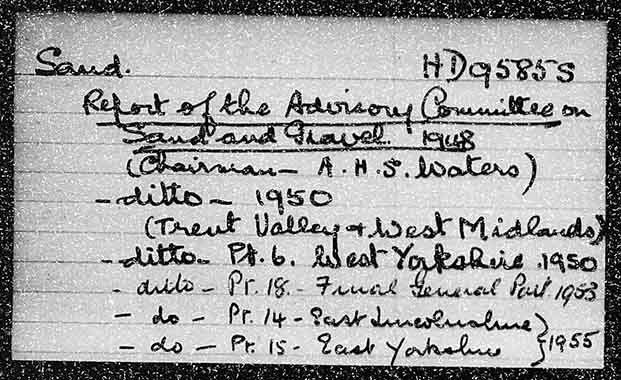 Sand. HD9585S
Report of the Advisory Committee on
Sand and Gravel. 1948
(Chairman - A.H.S. Waters)
- ditto - 1950
(Trent Valley & West Midlands)
- ditto - Pt. 6. West Yorkshire. 1950
- ditto - Pt. 18. - Final General Part. 1953
- do - Pt. 14 - East Lincolnshire }
- do - Pt. 15 - East Yorkshire } 1955